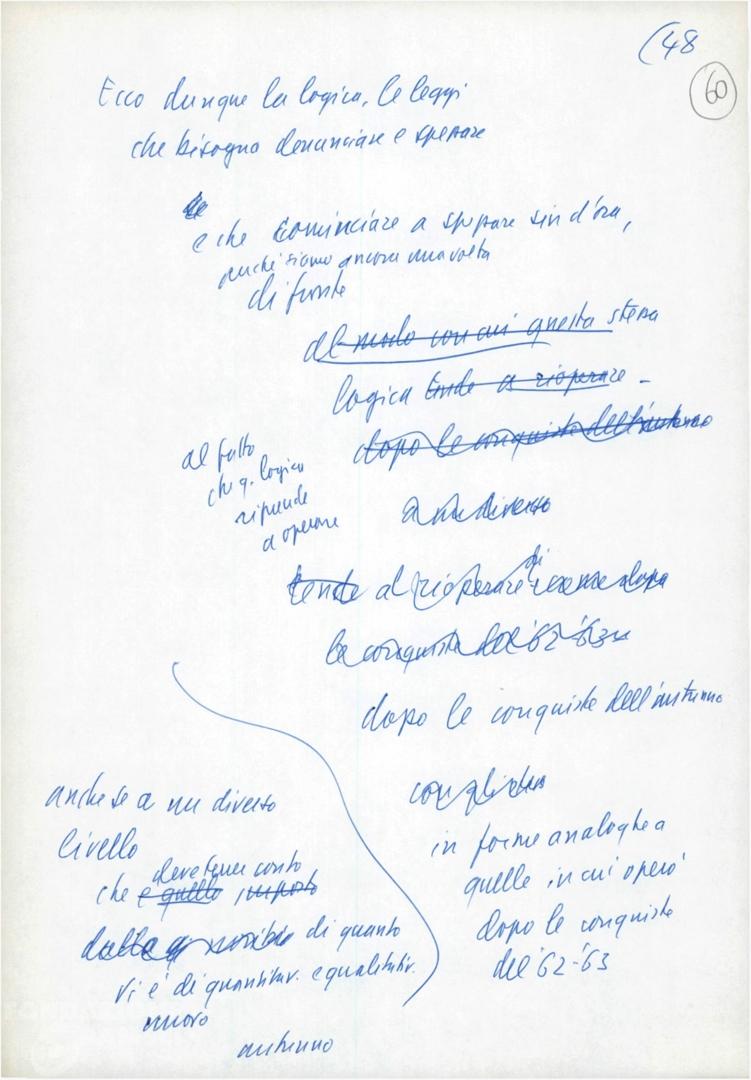 (48
60
Ecco dunque la logica, le leggi
che bisogna denunciare e spezzare
e che cominciare a spezzare sin d'ora,
perché siamo ancora una volta
di fronte
al modo con cui questa stessa
logica tende a rioperare -
dopo le conquiste dell'autunno
al fatto
che q. logica
riprende
a operare
a un diverso
tende al rioperare di dopo
le conquiste del '62-'63
dopo le conquiste dell'autunno
anche se a un diverso
livello
deve tener conto
che e quello imposto
di quanto
vi è di quantitav. e qualitativ.
nuovo
autunno
in forme analoghe a
quelle in cui operò
dopo le conquiste
del '62-'63